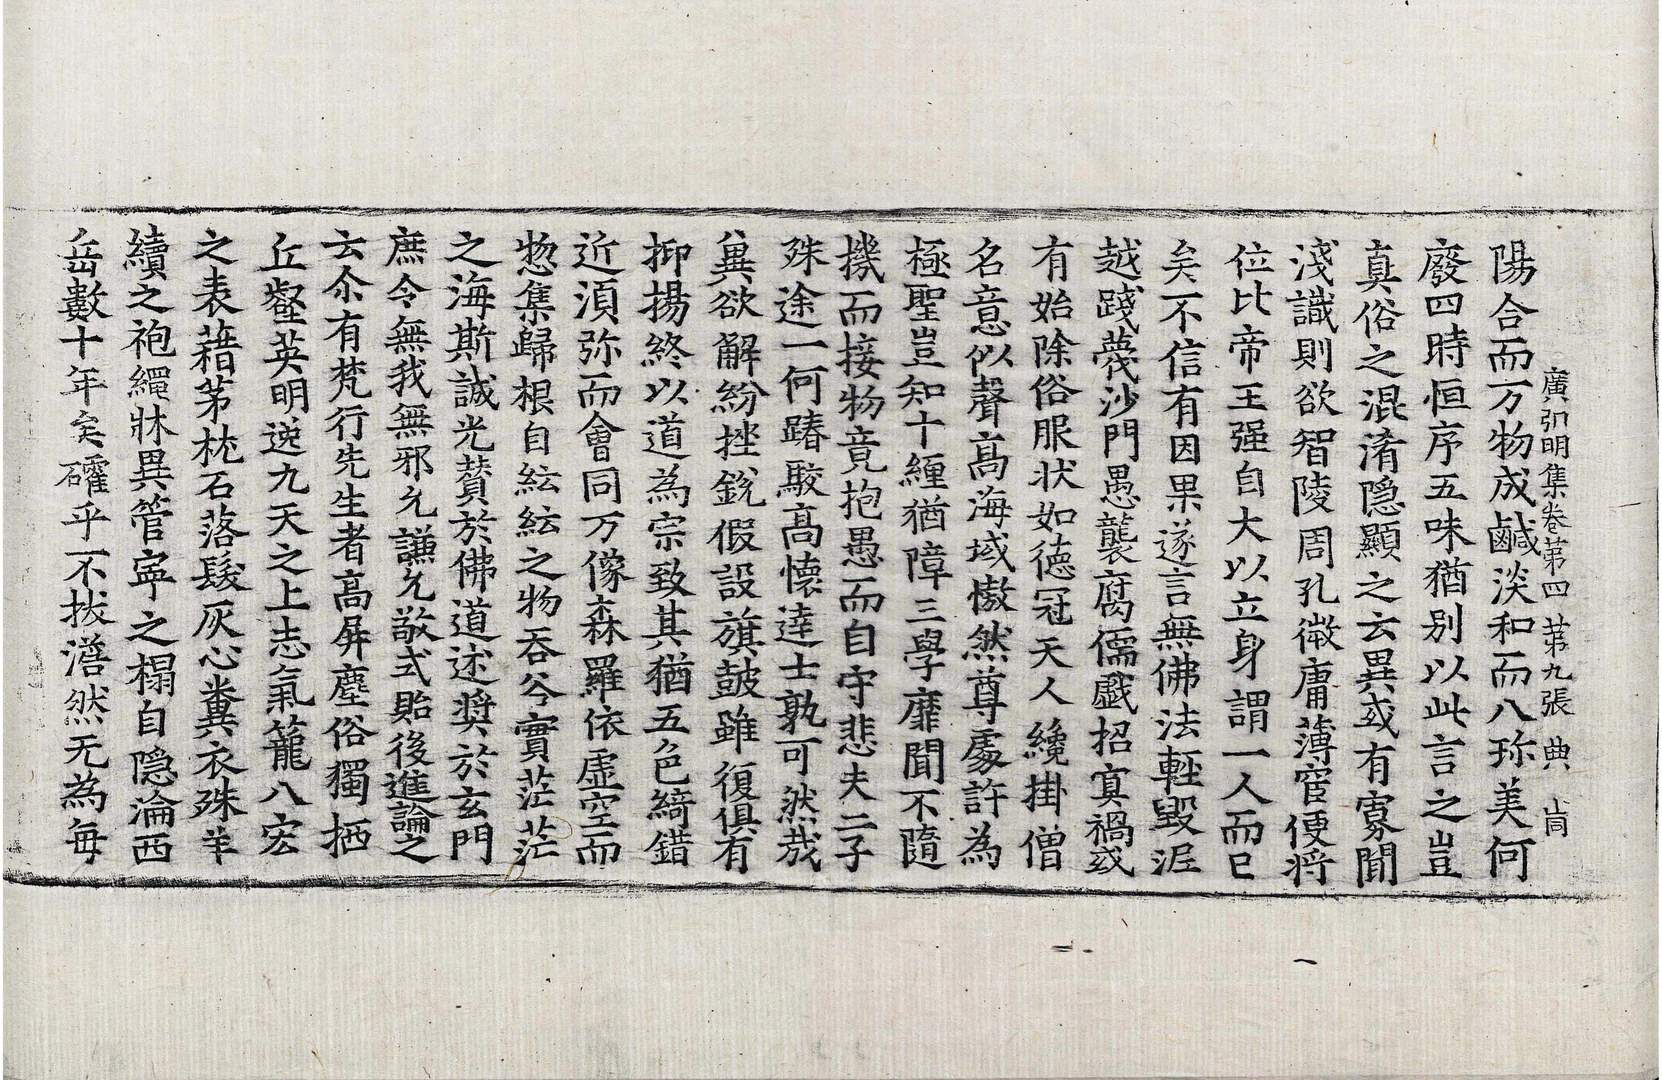 廣弘明集卷第四 第九張 典 崗
陽合而万物成鹹淡和而八珎美何
廢四時恒序五味猶别以此言之豈
真俗之混淆隐顯之云異或有寡聞
淺識則欲智陵周孔徵庸薄宦便将
位比帝王强自大以立身謂一人而已
矣不信有因果遂言無佛法輕毀泥
越踐蔑沙門愚襲腐儒戲招寘禍或
有始除俗服状如德冠天人纔掛僧
名意似聲高海域慠然尊處許為
極聖豈知十纏猶障三學靡聞不隨
機而接物竟抱愚而自守悲夫二子
殊途一何踳駮高懷達士孰可然哉
兾欲解紛挫銳假設旗鼓雖復俱有
抑揚終以道為宗致其猶五色綺錯
近湏弥而會同万像森羅依虛空而
惣集歸根自紜紜之物吞谷實茫茫
之海斯誠光賛於佛道述奬於玄門
庶令無我無邪允謙允敬式貽後進論之
云尒有梵行先生者高屏塵俗獨栖
丘壑英明逸九天之上志氣籠八宏
之表藉茅枕石落髮灰心糞衣殊羊
續之袍繩牀異管寧之榻自隐淪西
岳數十年矣確乎不拔澹然无為每